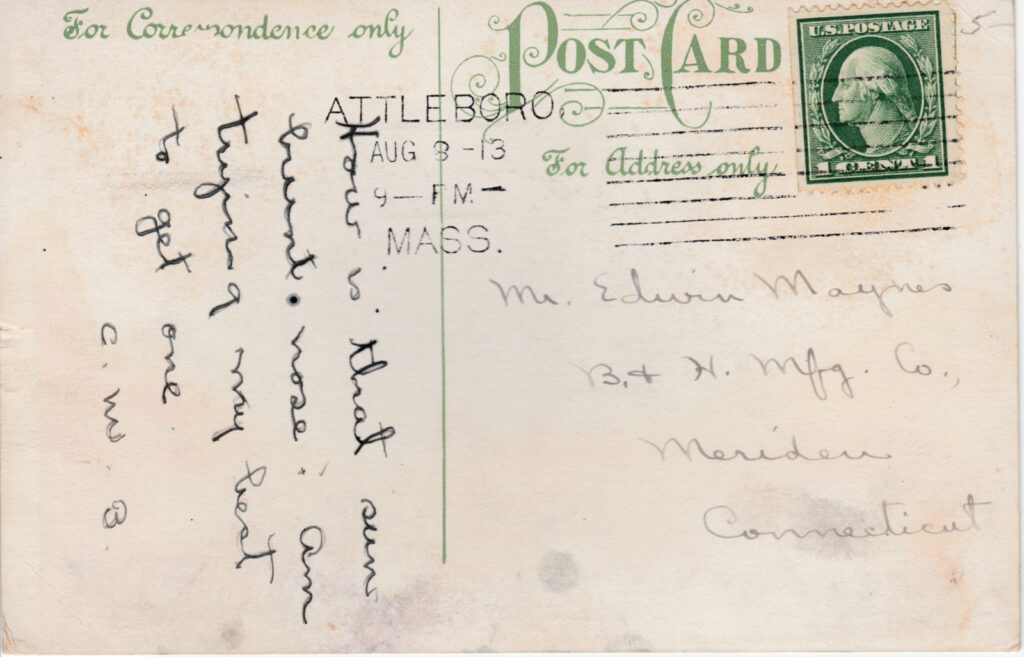 For Correspondence only
POST CARD
U.S. POSTAGE
1 CENT 1
5-
ATTLEBORO,
AUG 8 -13
9 — PM —
MASS.
For Address only
How is that sun
burnt nose. Am
trying my best
to get one
C. M. B.
Mr. Edwin Maynes
B. & H. Mfg. Co.,
Meriden
Connecticut